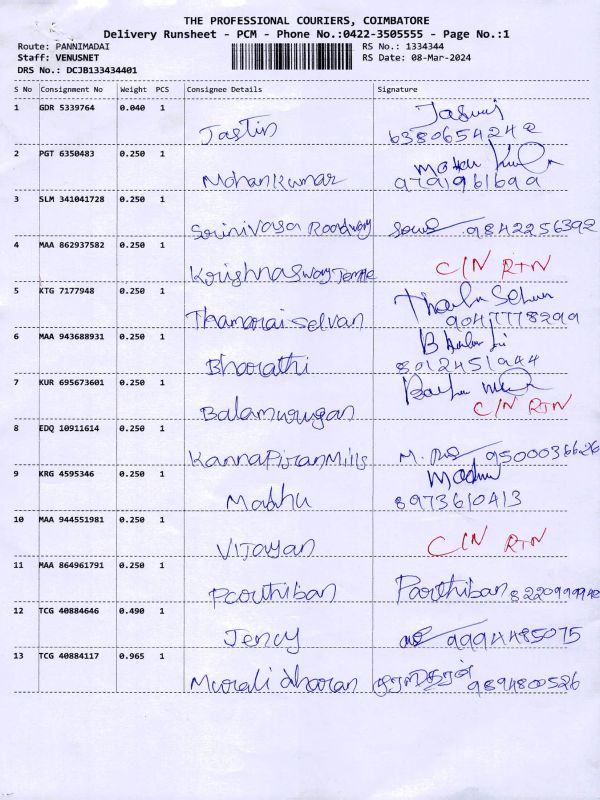 THE PROFESSIONAL COURIERS, COIMBATORE
Delivery Runsheet - PCM - Phone No.:0422-3505555 - Page No.:1
Route: PANNIMADAI RS No.: 1334344
Staff: VENUSNET RS Date: 08-Mar-2024
DRS No.: DCJB133434401
S No Consignment No Weight PCS Consignee Details Signature
1 GDR 5339764 0.040 1
Jastin 6380654242
2 PGT 6350483 0.250 1
Mohankumar 9791961699
3 SLM 341041728 0.250 1
Srinivasa Roadway 9842256392
4 MAA 862937582 0.250 1
Krishnaswamy Temple C/N RTN
5 KTG 7177948 0.250 1
Thamarai Selvan 9047778299
6 MAA 943688931 0.250 1
Bharathi 8012451944
7 KUR 695673601 0.250 1
Balamurugan C/N RTN
8 EDQ 10911614 0.250 1
KannaPiranMills 9500036626
9 KRG 4595346 0.250 1 Madhu
Madhu 8973610413
10 MAA 944551981 0.250 1
Vijayan C/N RTN
11 MAA 864961791 0.250 1
Parthiban Parthiban
12 TCG 40884646 0.490 1
Jency 9994485075
13 TCG 40884117 0.965 1
Muralidharan 9894800526